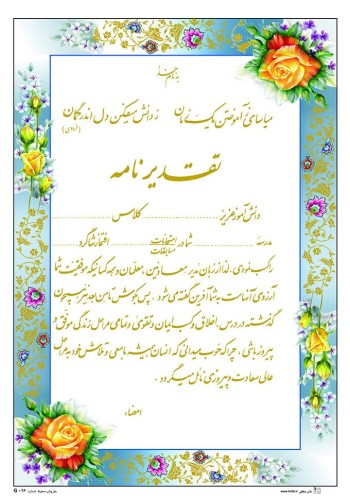 به نام خدا
میاسای ز آموختن یک زمان    ز دانش میفکن دل اندر گمان
(فردوسی)
تقدیرنامه
دانش آموز عزیز ........................ کلاس ........................
مدرسه ........ شما در امتحانات مسابقات ........ افتخار شاگرد ........
را کسب نمودی، لذا از زبان مدیر، معاونین، معلمان و همه کسانیکه موفقیت شما
آرزوی آنهاست به شما آفرین گفته می شود. پس بکوش تا من بعد نیز همچون
گذشته در درس، اخلاق و کسب ایمان و تقوی و تمامی مراحل زندگی موفق و
پیروز باشی، چرا که خوب میدانی که انسان همیشه با سعی و تلاش خود به مراحل
عالی سعادت و پیروزی نائل میگردد.
امضاء